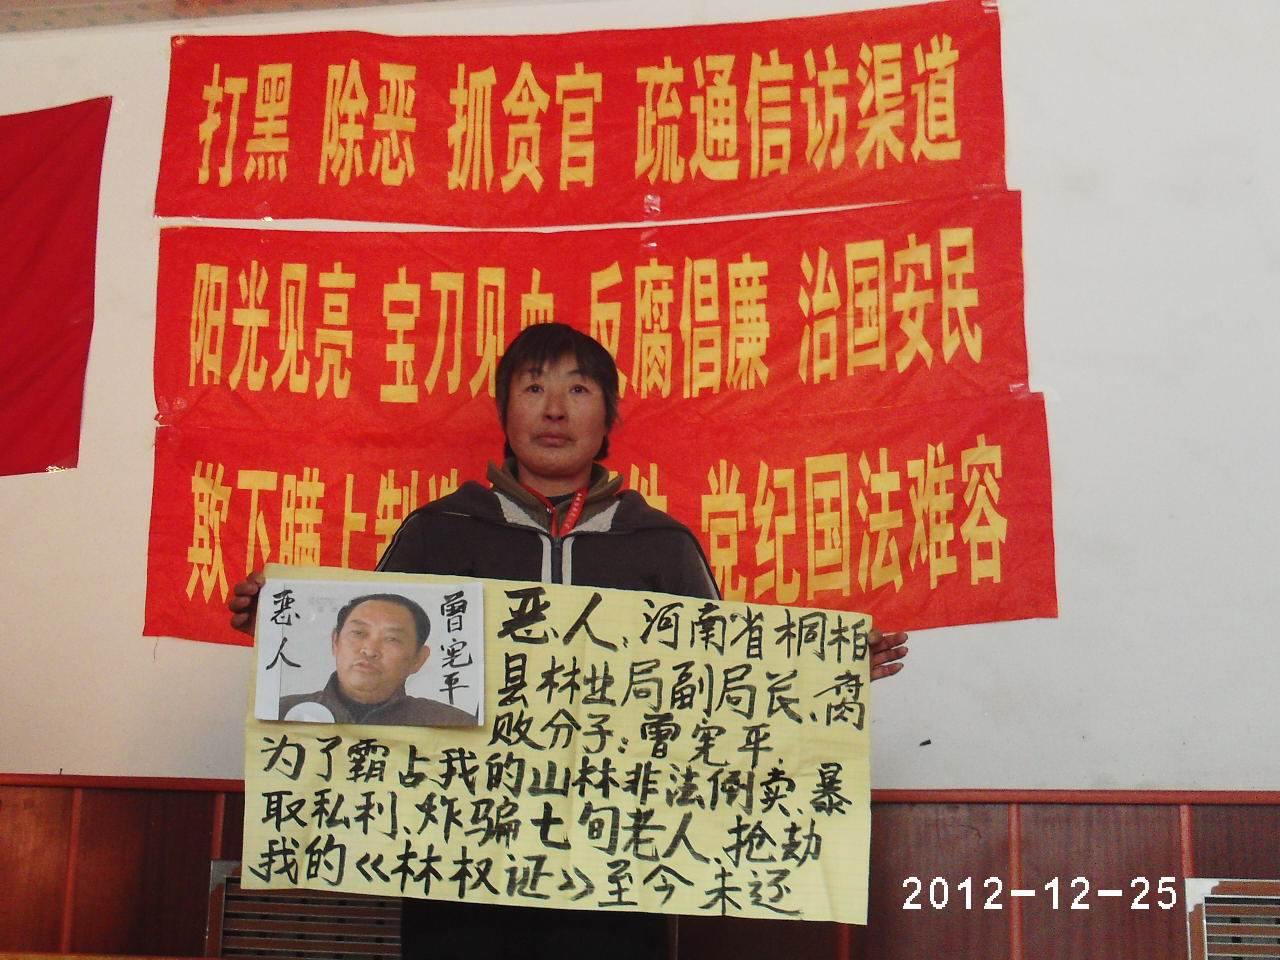 打黑 除恶 抓贪官 疏通信访渠道
阳光见亮 宝刀见血 反腐倡廉 治国安民
欺下瞒上制造 党纪国法难容
恶人
曾宪平
恶人:河南省桐柏
县林业局副局长、腐
败分子:曾宪平,
为了霸占我的山林非法倒卖、暴
取私利、炸骗七旬老人、抢劫
我的《林权证》至今未还
2012-12-25